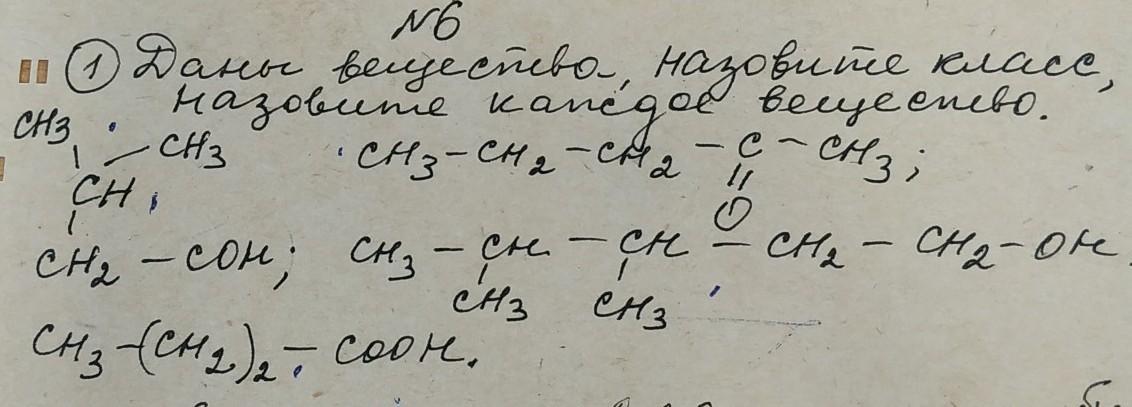 №6
II ① Даны вещества, назовите класс,
назовите каждое вещество.
CH3
CH3
CH3-CH2-CH2-C-CH3;
CH
||
O
CH2-COH; CH3-CH-CH-CH2-CH2-OH.
CH3 CH3
CH3-(CH2)2-COOH.